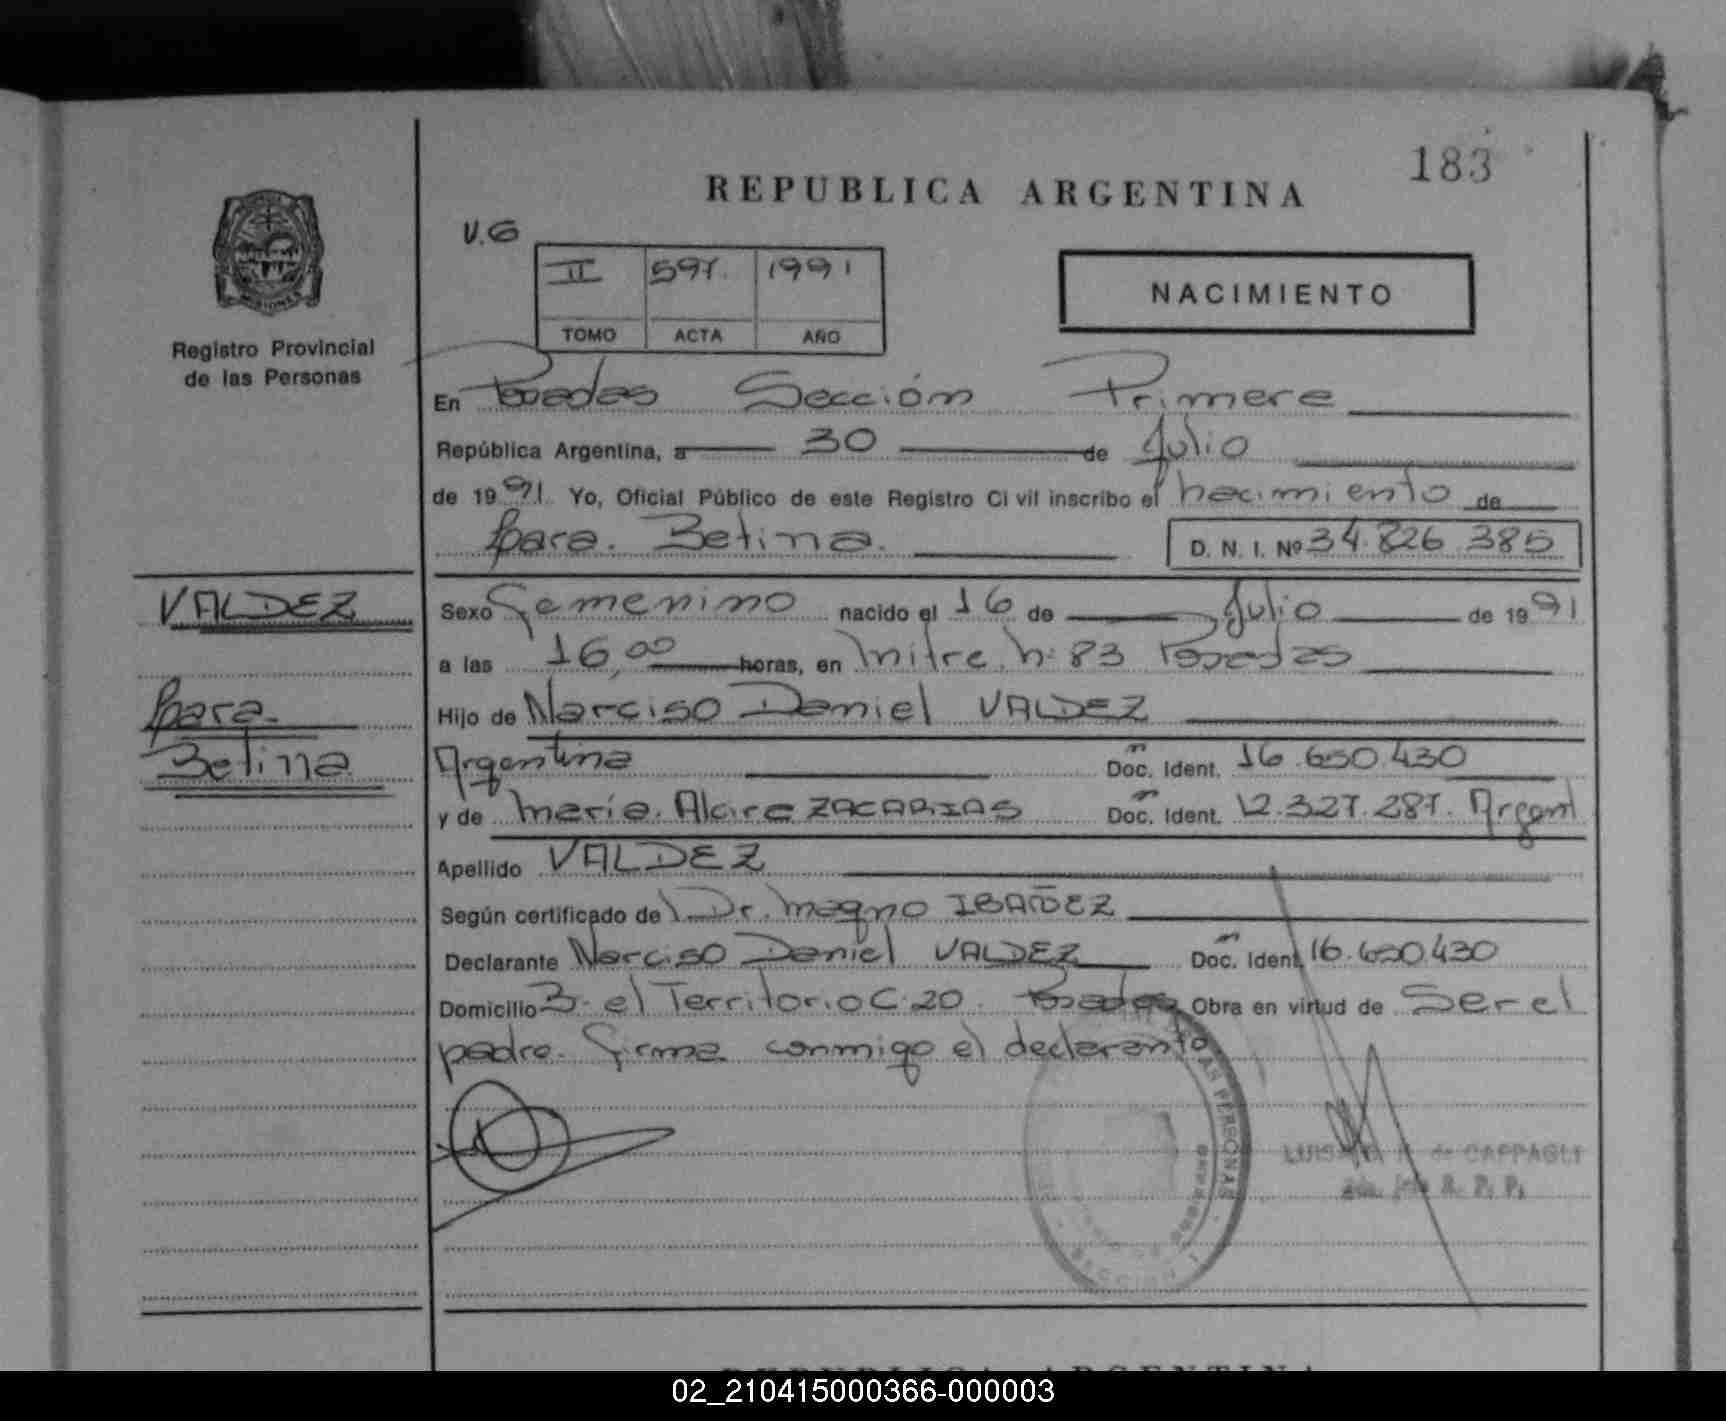 183
REPUBLICA ARGENTINA
V.G
II 597. 1991
TOMO ACTA AÑO
NACIMIENTO
MISIONES
Registro Provincial
de las Personas
En Posadas Sección Primera
República Argentina, a 30 de Julio
de 1991. Yo, Oficial Público de este Registro Civil inscribo el nacimiento de
Betina. D. N. I. Nº 34.826.385
VALDEZ
Sexo Femenino nacido el 16 de Julio de 1991
a las 16,00 horas, en Mitre n: 83 Posadas
Betina
Hijo de Narciso Daniel VALDEZ
Argentina Doc. Ident. 16.650.430
y de María Alcira ZACARIAS Doc. Ident. 12.327.287. Argent
Apellido VALDEZ
Según certificado del Dr. Magno IBAÑEZ
Declarante Narciso Daniel VALDEZ Doc. Ident. 16.650.430
Domicilio B. el Territorio C. 20. Posadas Obra en virtud de Ser el
padre. Firma conmigo el declarante
LAS PERSONAS
SECCION 1
de CAPPAGLI
R. P. P.
REPUBLICA ARGENTINA
02_210415000366-000003